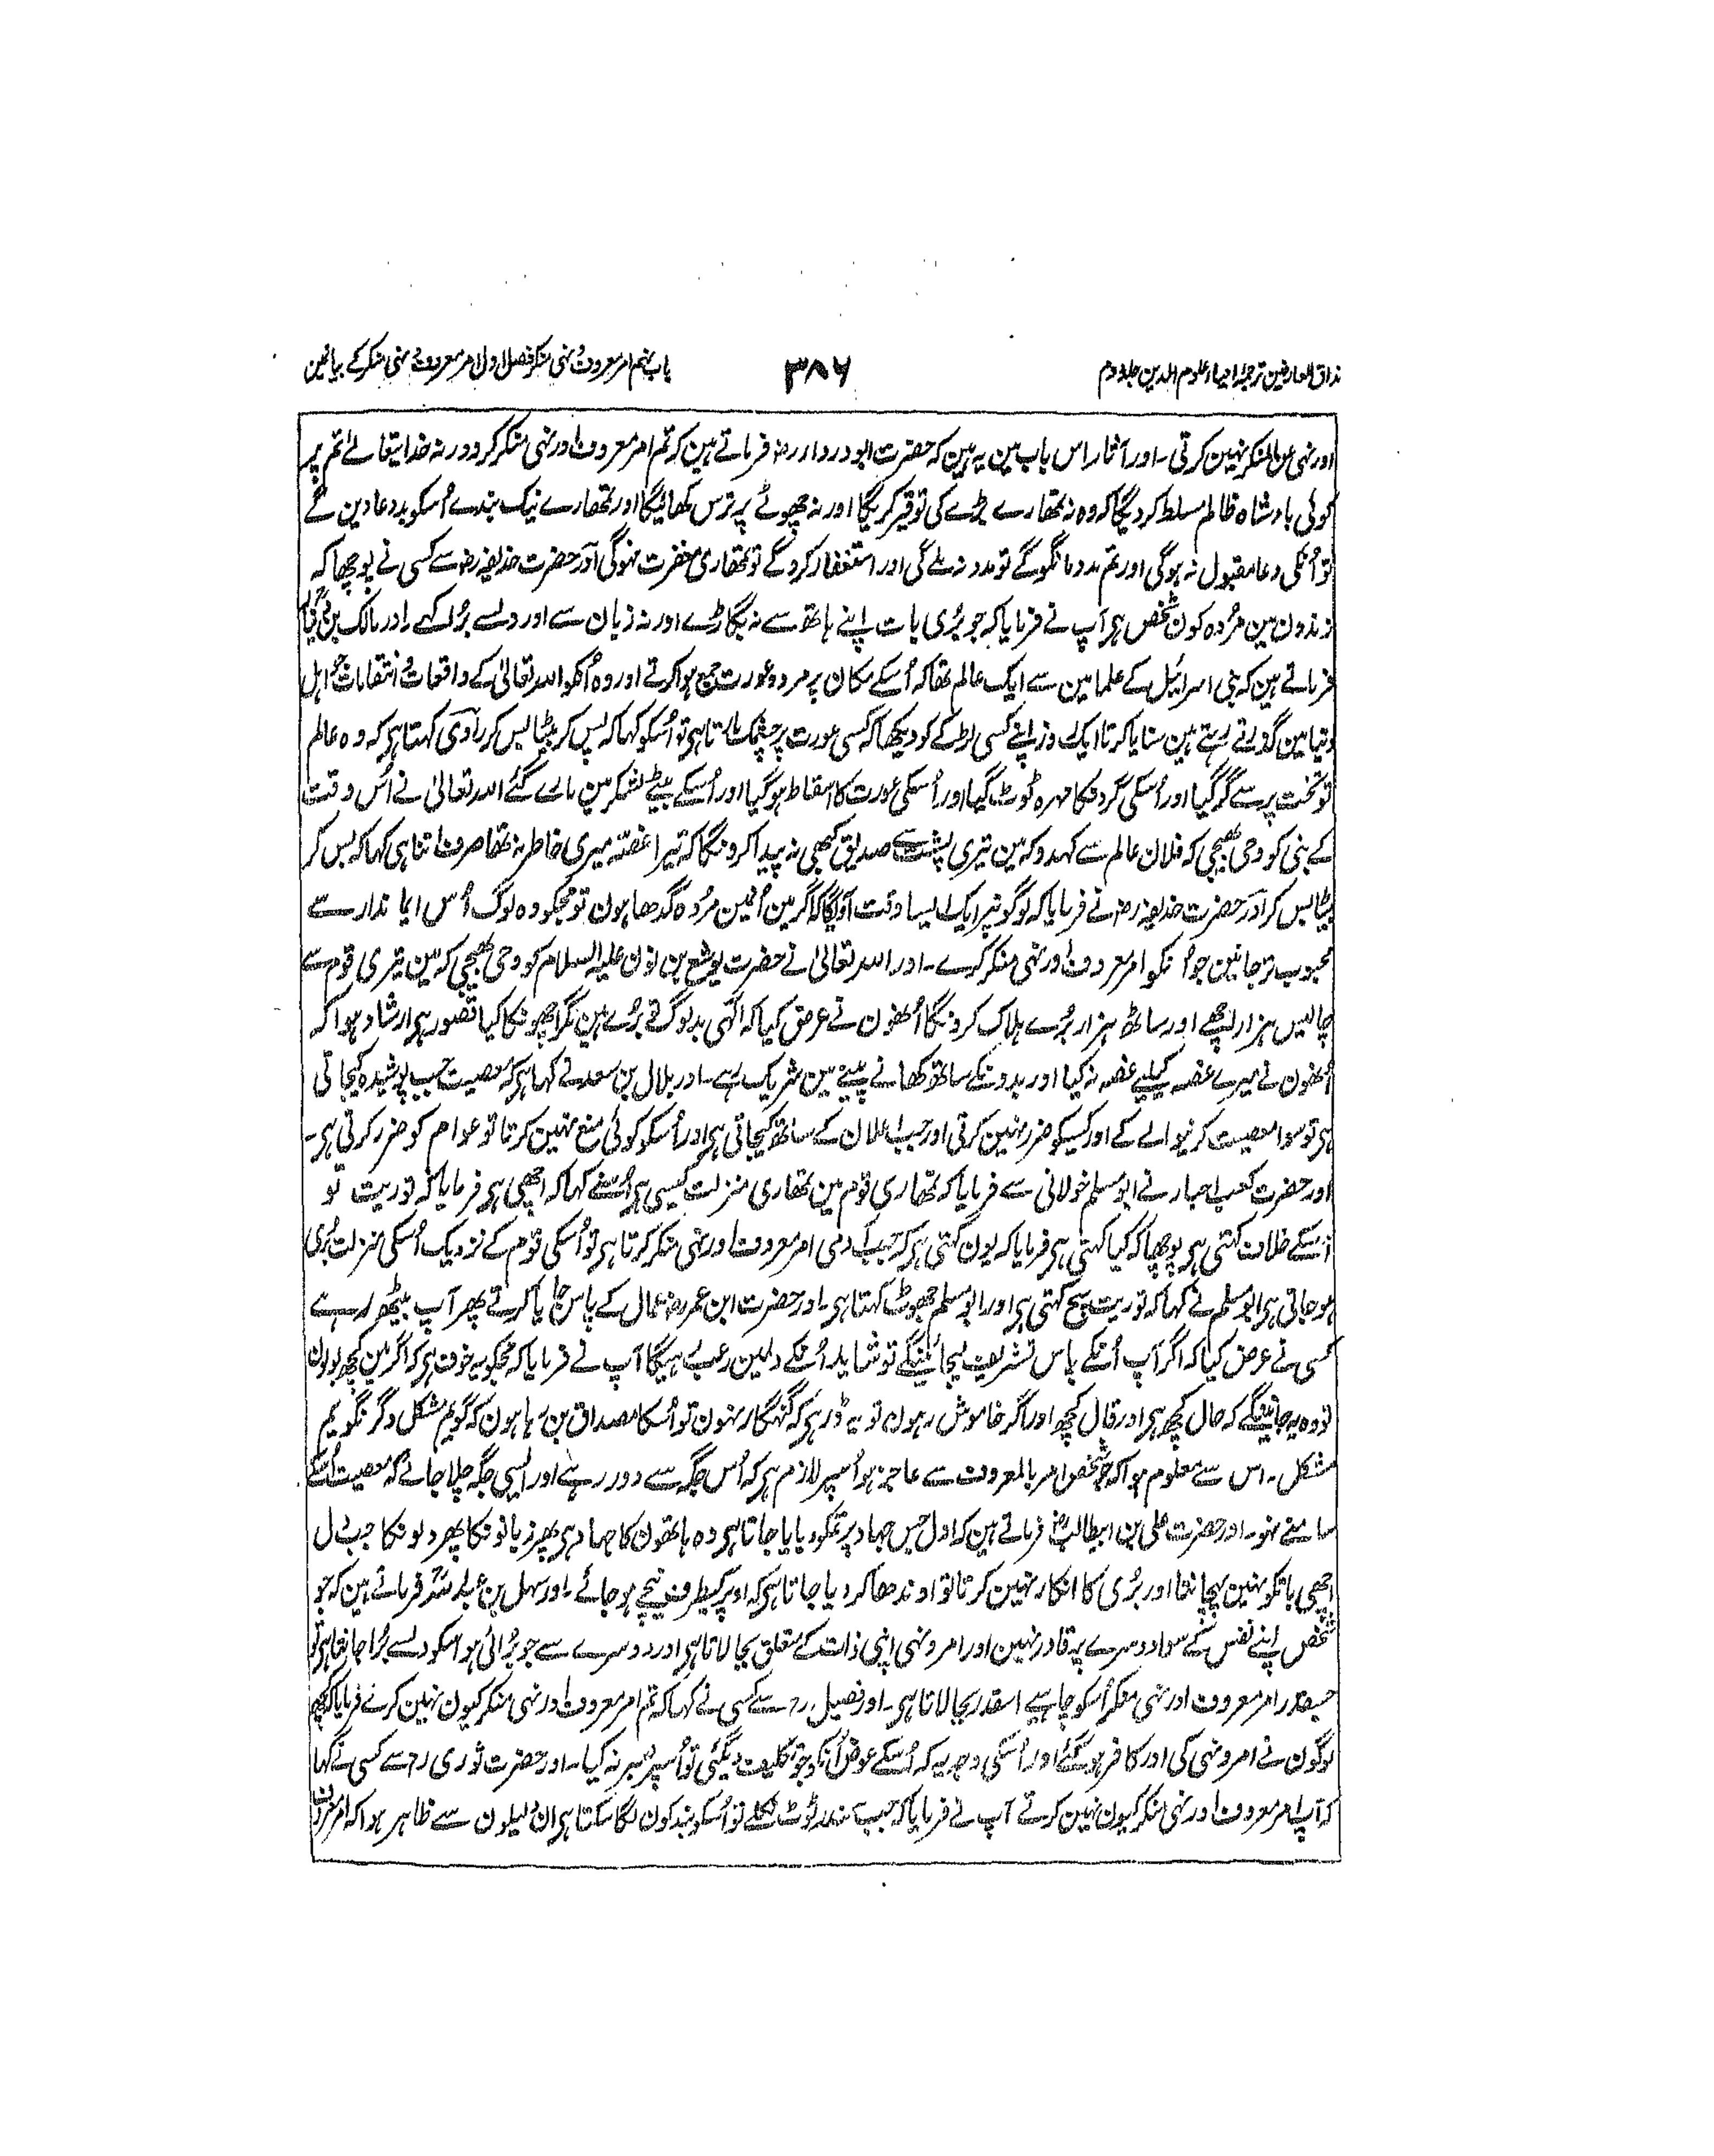 مذاق العارفین ترجمہ احیاء علوم الدین جلد دوم
۳۸۶
باب نہم امر معروف و نہی منکر فصل اول امر معروف و نہی منکر کے بیانمین
اور نہی عن المنکر نہین کرتی ۔ اور آثار اس باب مین یہ ہین کہ حضرت ابو درداء رضہ فرماتے ہین کہ تم امر معروف اور نہی منکر کرو ورنہ خدایتعالےٰ تم پر
کوئی بادشاہ ظالم مسلط کردیگا کہ وہ نہ تمھارے بڑے کی توقیر کریگا اور نہ چھوٹے پر ترس کھائیگا اور تمھارے نیک بندے اُسکو بددعا دین گے
تو اُنکی دعا مقبول نہ ہوگی اور تم مدد مانگوگے تو مدد نہ ملے گی اور استغفار کروگے تو تمھاری مغفرت نہوگی اور حضرت حذیفہ رضہ سے کسی نے پوچھا کہ
زندون مین مُردہ کون شخص ہر آپ نے فرمایا کہ جو بُری بات اپنے ہاتھ سے نہ بگاڑے اور نہ زبان سے اور دلسے بُرا کہے ۔ اور مالک بن دینار
فرماتے ہین کہ بنی اسرائیل کے علما مین سے ایک عالم تھا کہ اُسکے مکان پر مرد و عورت جمع ہوا کرتے اور وہ اُنکو اللہ تعالیٰ کے واقعات و انتقامات جو اہل
دنیا مین گذرتے رہتے ہین سنایا کرتا ایک روز اپنے کسی لڑکے کو دیکھا کہ کسی عورت پر چشمک مارتا ہی تو اُسکو کہا کہ بس کر بیٹا بس کر راوی کہتا ہر کہ وہ عالم
تو تخت پر سے گر گیا اور اُسکی گردنکا مہرہ ٹوٹ گیا اور اُسکی عورت کا اسقاط ہوگیا اور اُسکے بیٹے لشکر مین مارے گئے اللہ تعالیٰ نے اُس وقت
کے بنی کو وحی بھیجی کہ فلان عالم سے کہدو کہ مین تیری پشت سے صدیق کبھی نہ پیدا کرونگا کہ تیرا غصّہ میری خاطر نہ تھا صرف اتنا ہی کہا کہ بس کر
بیٹا بس کر اور حضرت حذیفہ رضہ نے فرمایا کہ لوگونپر ایک ایسا وقت آویگا کہ اگر مین اُنمین مُردہ گدھا ہون تو مجکو وہ لوگ اُس ایماندار سے
محبوب تر جانین جو اُنکو امر معروف اور نہی منکر کرے ۔ اور اللہ تعالیٰ نے حضرت یوشع بن نون علیہ السلام کو وحی بھیجی کہ مین تیری قوم سے
چالیس ہزار اچھے اور ساٹھ ہزار بُرے ہلاک کرونگا اُنھون نے عرض کیا کہ الٰہی بد لوگ تو بُرے ہین مگر اچھونکا کیا قصور ہر ارشاد ہوا کہ
اُنھون نے میرے غصہ کیلیے غصہ نہ کیا اور بدونکے ساتھ کھانے پینے مین شریک رہے ۔ اور بلال بن سعد نے کہا ہر کہ معصیت جب پوشیدہ کیجاتی
ہر تو سوا معصیت کرنیوالے کے اور کسیکو ضرر نہین کرتی اور جب اعلان کے ساتھ کیجاتی ہر اور اُسکو کوئی منع نہین کرتا تو عوام کو ضرر کرتی ہر ۔
اور حضرت کعب احبار نے ابو مسلم خولانی سے فرمایا کہ تمھاری قوم مین تمھاری منزلت کیسی ہر اُسنے کہا کہ اچھی ہر فرمایا کہ توریت تو
اُسکے خلاف کہتی ہر پوچھا کہ کیا کہتی ہر فرمایا کہ یون کہتی ہر کہ جب آدمی امر معروف اور نہی منکر کرتا ہر تو اُسکی قوم کے نزدیک اُسکی منزلت بُری
ہو جاتی ہر ابو مسلم نے کہا کہ توریت سچ کہتی ہر اور ابو مسلم جھوٹ کہتا ہر ۔ اور حضرت ابن عمر رضہ عمال کے پاس جایا کرتے پھر آپ بیٹھ رہے
کسی نے عرض کیا کہ اگر آپ اُنکے پاس تشریف لیجائینگے تو شاید اُنکے دلمین رعب رہیگا آپ نے فرمایا کہ مجکو یہ خوف ہر کہ اگر مین کچھ بولون
تو وہ یہ جانینگے کہ حال کچھ ہر اور قال کچھ اور اگر خاموش رہون تو یہ ڈر ہر کہ گنہگار نہون تو اُسکا مصداق بن رہا ہون کہ گویم مشکل وگر نگویم
مشکل ۔ اس سے معلوم ہوا کہ جو شخص امر بالمعروف سے عاجز ہو اُسپر لازم ہر کہ اُس جگہ سے دور رہے اور ایسی جگہ چلا جائے کہ معصیت اُسکے
سامنے نہو ۔ اور حضرت علی بن ابیطالب رضہ فرماتے ہین کہ اول جس جہاد پر تمکو دبایا جاتا ہر وہ ہاتھون کا جہاد ہر پھر زبانونکا پھر دلونکا جب دل
اچھی باتکو نہین پہچانتا اور بُری کا انکار نہین کرتا تو اوندھا کر دیا جاتا ہر کہ اوپر کیطرف نیچے ہو جائے ۔ اور سہل بن عبداللہ فرماتے ہین کہ جو
شخص اپنے نفس کے سوا دوسرے پر قادر نہین اور امر و نہی اپنی ذات کے متعلق بجا لاتا ہر اور دوسرے سے جو بُرائی ہو اسکو دلسے بُرا جانتا ہر تو
جسقدر امر معروف اور نہی منکر اُسکو چاہیے اسقدر بجا لاتا ہر ۔ اور فضیل رح سے کسی نے کہا کہ تم امر معروف اور نہی منکر کیون نہین کرتے فرمایا کہ کچھ
لوگون نے امر و نہی کی اور کافر ہوگئے اور اُسکی وجہ یہ کہ اُسکے عوض اُنکو جو تکلیف دیگئی تو اُسپر صبر نہ کیا ۔ اور حضرت ثوری رح سے کسی نے کہا
کہ آپ امر معروف اور نہی منکر کیون نہین کرتے آپ نے فرمایا کہ جب سمندر ٹوٹ نکلے تو اُسکو بند کون لگا سکتا ہر ان دلیلون سے ظاہر ہوا کہ امر معروف